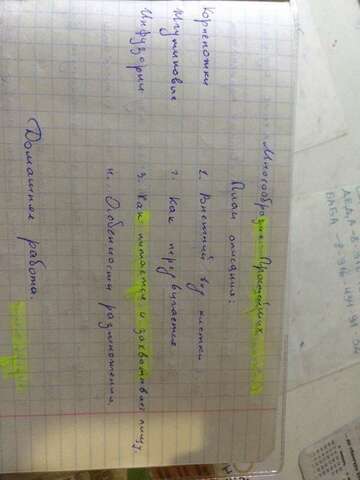 Многообразие Простейших
План описания:
Корненожки 1. Внешний вид клетки
Жгутиковые 2. Как передвигается
Инфузории 3. Как питается и захватывает пищу.
4. Особенности размножения.
Домашняя работа.